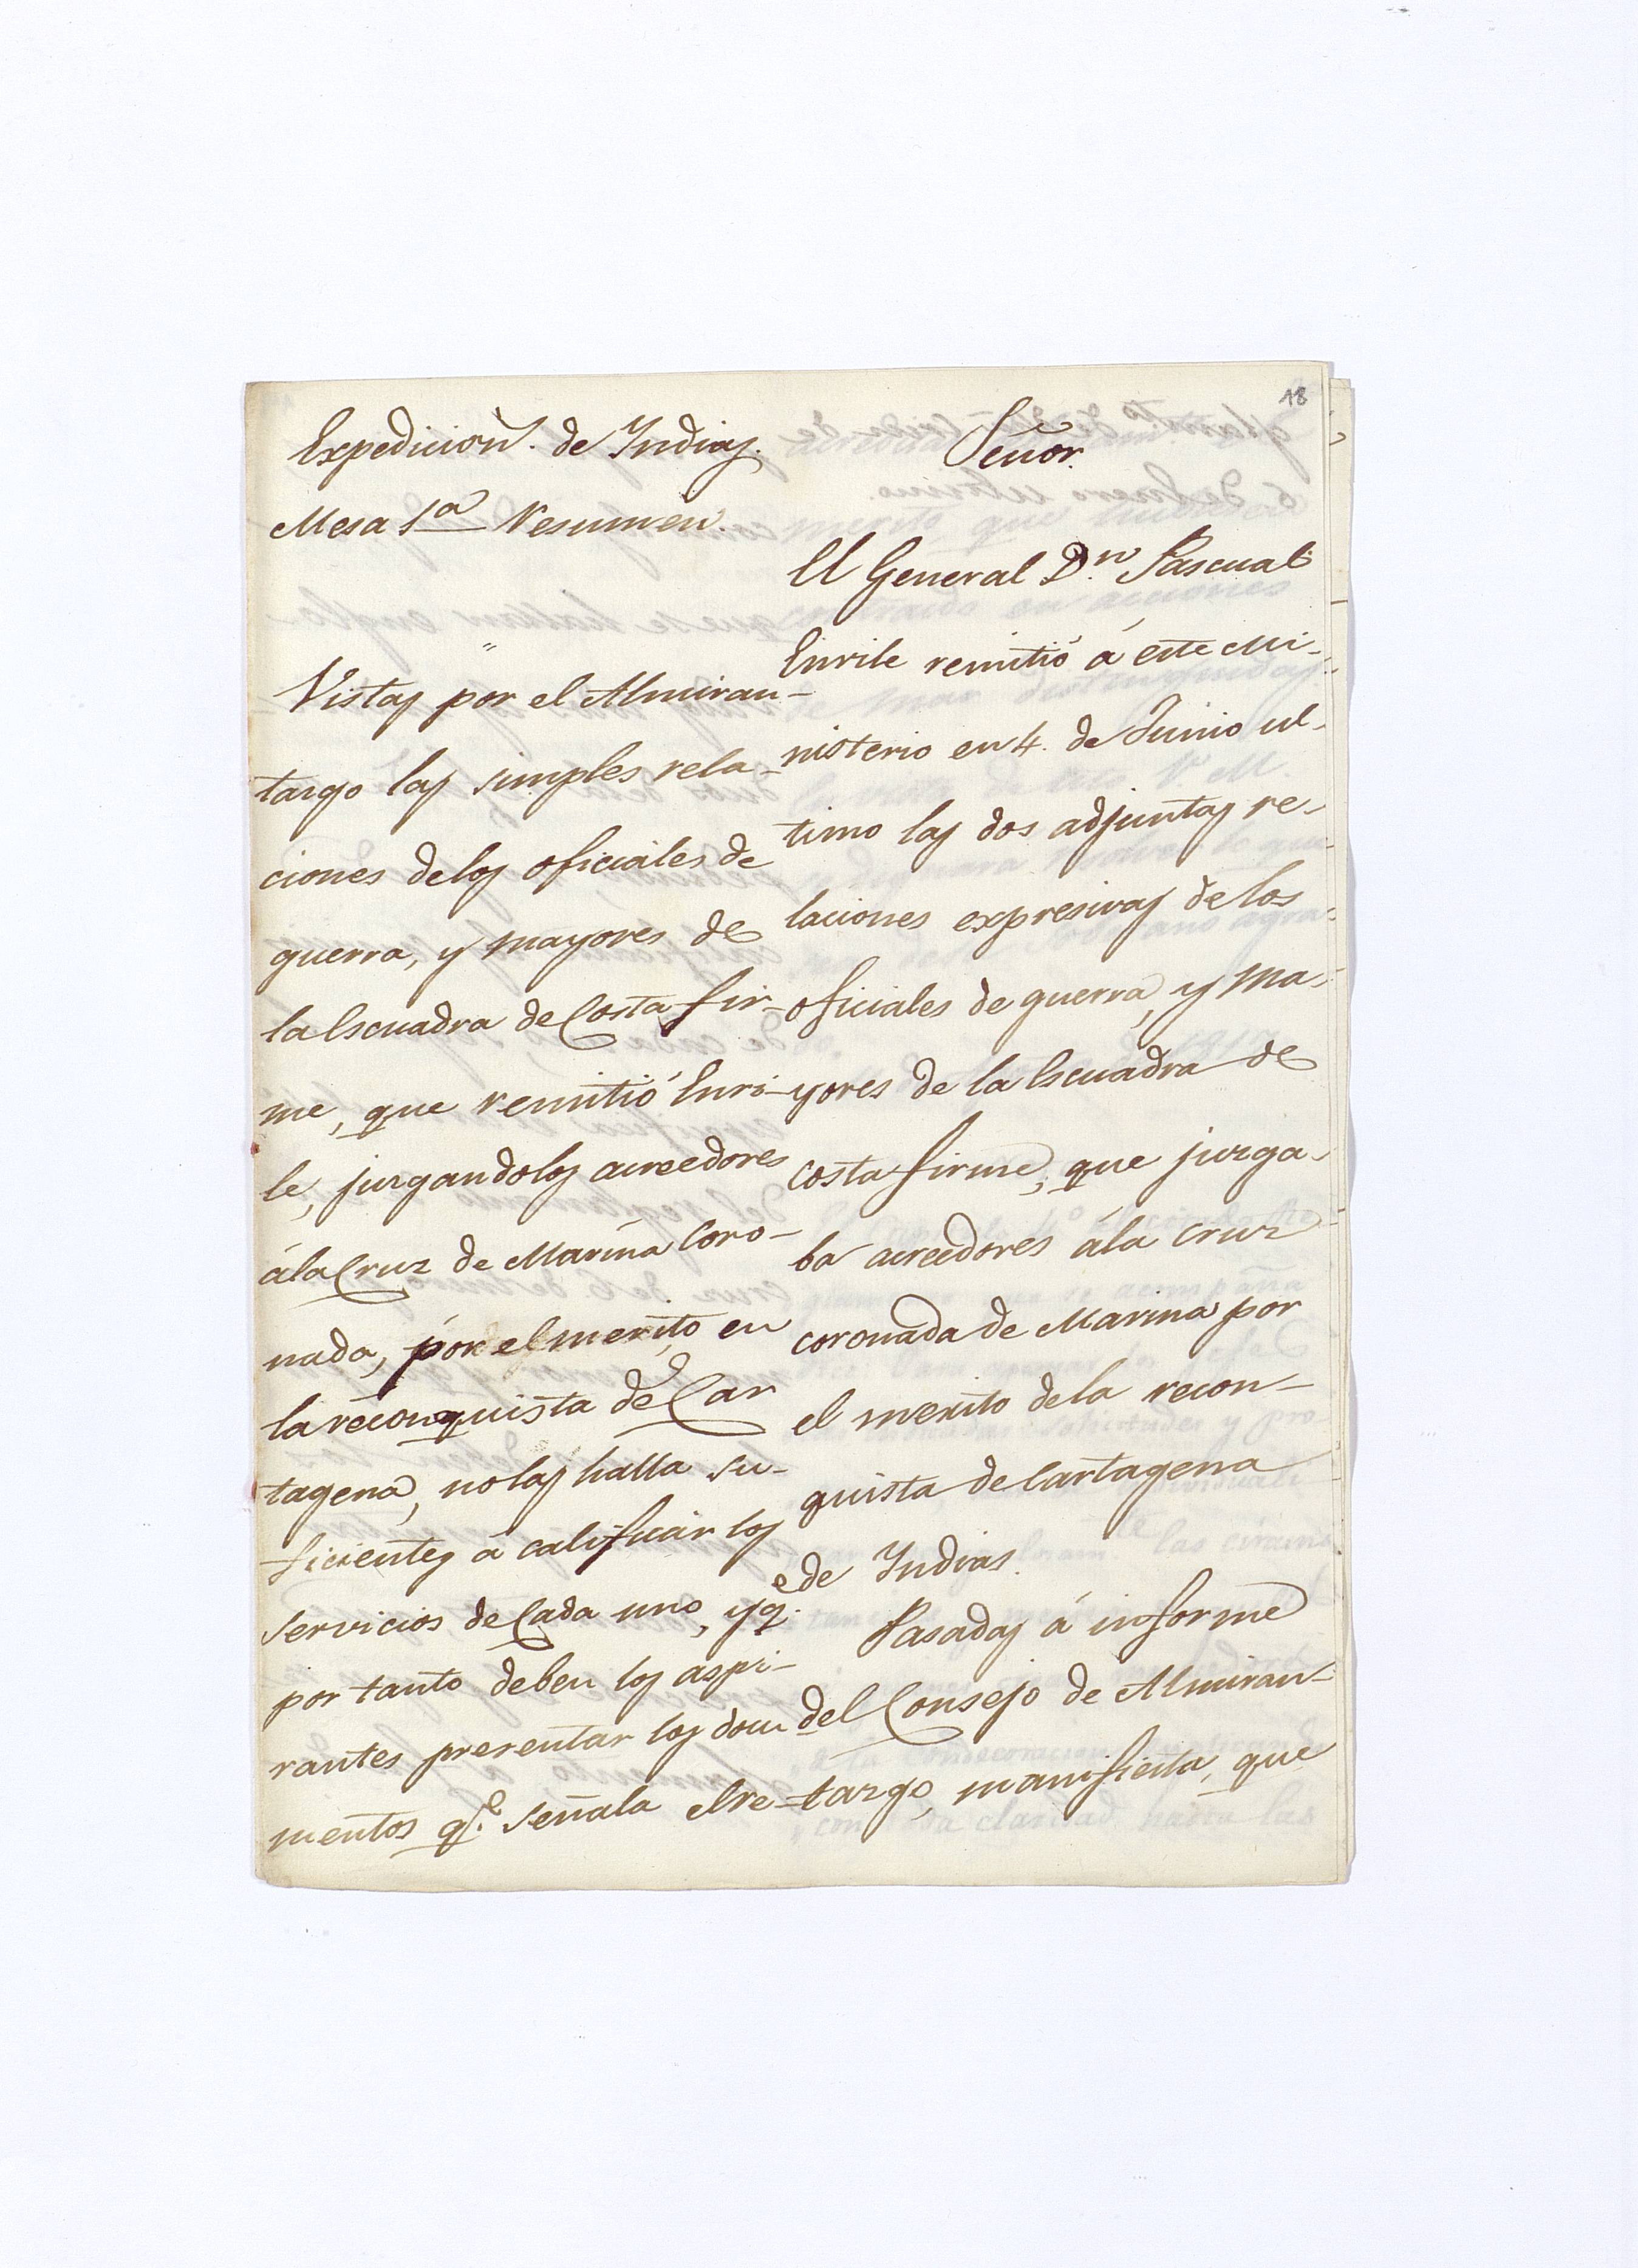 18
Expedicion. de Indias.
Mesa 1a Resumen.
Vistas por el Almiran-
tazgo las simples rela-
ciones delos oficiales de
guerra, y mayores de
la Escuadra de Costa fir-
me, que remitió Enri-
le, juzgandolos acreedores
ála Cruz de Marina Coro-
nada, por el merito, en
la reconquista de Car
tagena, nolas halla su-
ficientes á calificar los
servicios de Cada uno, yqe.
por tanto deben los aspi-
rantes presentar los docu
mentos qe. señala el re-
Señor.
El General Dn. Pascual
Enrile remitió á este Mi-
nisterio en 4. de Junio ul-
timo las dos adjuntas re-
laciones expresivas de los
oficiales de guerra, y ma-
yores de la Escuadra de
costa firme, que juzga-
ba acreedores ála cruz
coronada de Marina por
el merito dela recon-
quista de Cartagena
de Indias.
Pasadas á informe
del Consejo de Almiran-
tazgo, manifiesta, que